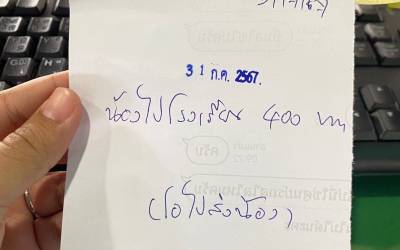 31 ก.ค. 2567.
น้องไปโรงเรียน 400 บาท
(โอไปส่งน้อง)